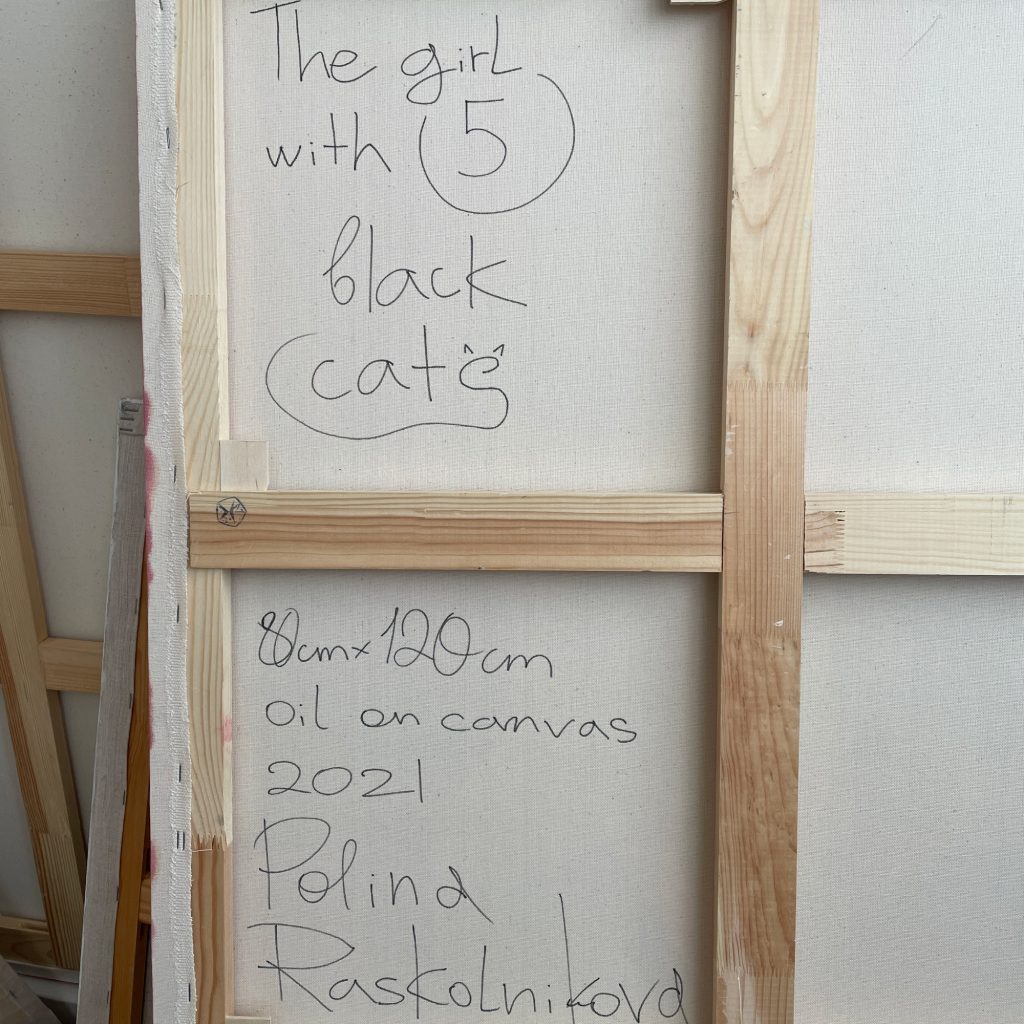 The girl
with 5
black
cats
80cm×120cm
oil on canvas
2021
Polina
Raskolnikova